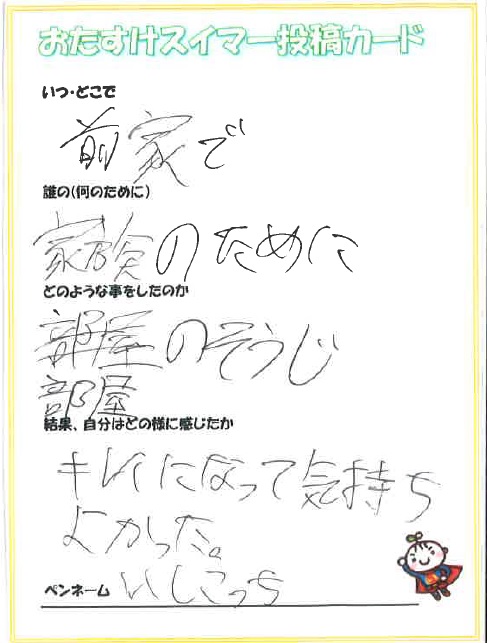 おたすけスイマー投稿カード
いつ・どこで
前家で
誰の(何のために)
家族のために
どのような事をしたのか
部屋のそうじ
部屋
結果、自分はどの様に感じたか
キレイになって気持ち
よかった。
ペンネーム いしこっち